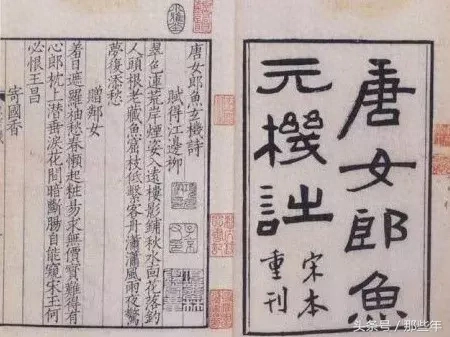 唐女郎魚
元機詩
宋本
重刊
唐女郎魚玄機詩
賦得江邊柳
翠色連荒岸煙姿入遠樓影鋪秋水面花落釣
人頭根老藏魚窟枝低繫客舟瀟瀟風雨夜驚
夢復添愁
贈鄰女
羞日遮羅袖愁春懶起粧易求無價寶難得有
心郎枕上潛垂淚花間暗斷腸自能窺宋玉何
必恨王昌
寄國香
头条号 / 那些年